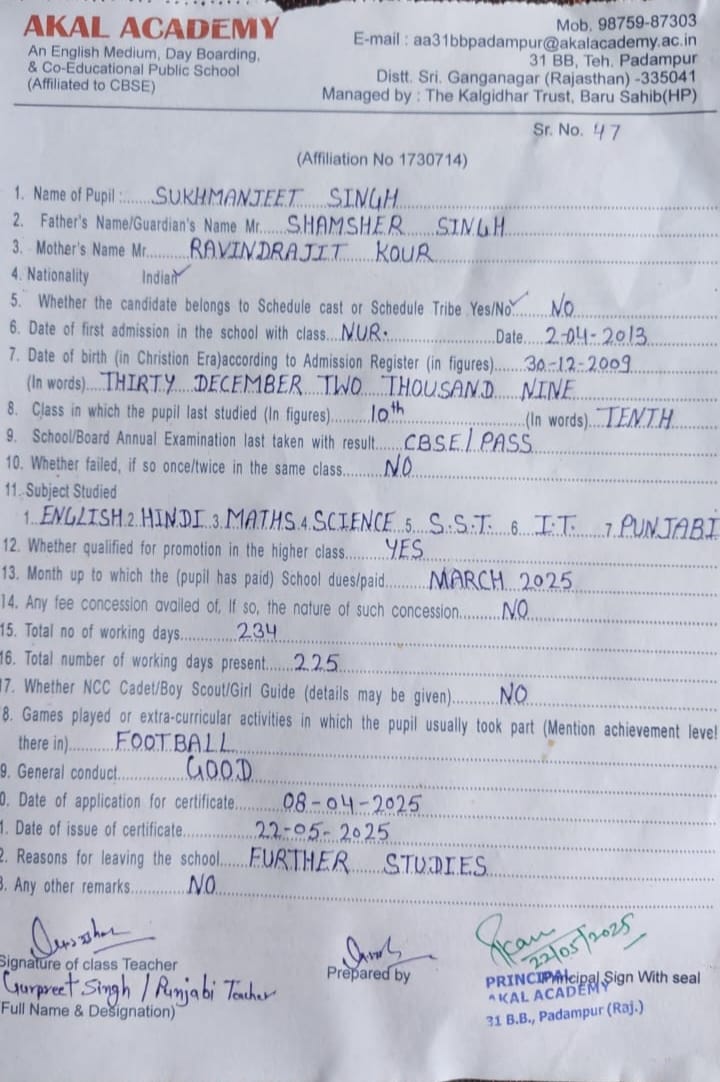 AKAL ACADEMY
An English Medium, Day Boarding,
& Co-Educational Public School
(Affiliated to CBSE)
Mob. 98759-87303
E-mail : aa31bbpadampur@akalacademy.ac.in
31 BB, Teh. Padampur
Distt. Sri. Ganganagar (Rajasthan) -335041
Managed by : The Kalgidhar Trust, Baru Sahib(HP)
Sr. No. 47
(Affiliation No 1730714)
1. Name of Pupil :...... SUKHMANJEET SINGH
2. Father's Name/Guardian's Name Mr...... SHAMSHER SINGH
3. Mother's Name Mr.......... RAVINDRAJIT KOUR
4. Nationality Indian ✓
5. Whether the candidate belongs to Schedule cast or Schedule Tribe Yes/No ✓...... NO
6. Date of first admission in the school with class... NUR. Date 2-04-2013
7. Date of birth (in Christion Era)according to Admission Register (in figures)...... 30-12-2009
(In words)... THIRTY DECEMBER TWO THOUSAND NINE
8. Class in which the pupil last studied (In figures)......... 10th (In words) TENTH
9. School/Board Annual Examination last taken with result...... CBSE / PASS
10. Whether failed, if so once/twice in the same class...... NO
11. Subject Studied
1. ENGLISH 2. HINDI 3. MATHS 4. SCIENCE 5. S.S.T. 6. I.T. 7. PUNJABI
12. Whether qualified for promotion in the higher class...... YES
13. Month up to which the (pupil has paid) School dues/paid...... MARCH 2025
14. Any fee concession availed of, If so, the nature of such concession......... NO
15. Total no of working days............ 234
16. Total number of working days present...... 225
17. Whether NCC Cadet/Boy Scout/Girl Guide (details may be given)......... NO
8. Games played or extra-curricular activities in which the pupil usually took part (Mention achievement level
there in)......... FOOTBALL
9. General conduct............ GOOD
0. Date of application for certificate......... 08-04-2025
1. Date of issue of certificate............ 22-05-2025
2. Reasons for leaving the school...... FURTHER STUDIES
3. Any other remarks............ NO
22/05/2025
Signature of class Teacher
Prepared by
Principal Sign With seal
PRINCIPAL
AKAL ACADEMY
31 B.B., Padampur (Raj.)
Gurpreet Singh / Punjabi Teacher
(Full Name & Designation)